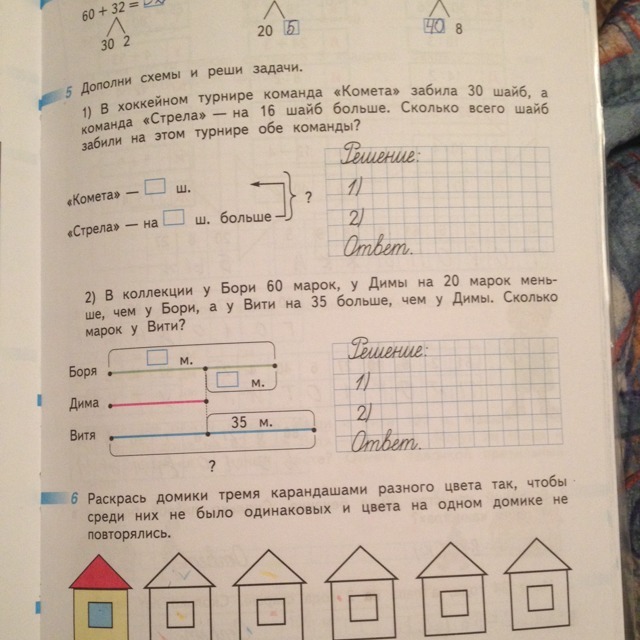 60 + 32 =
30 2
20 5
40 8
5 Дополни схемы и реши задачи.
1) В хоккейном турнире команда «Комета» забила 30 шайб, а
команда «Стрела» — на 16 шайб больше. Сколько всего шайб
забили на этом турнире обе команды?
Решение:
«Комета» — ш.
1)
?
«Стрела» — на ш. больше
2)
Ответ.
2) В коллекции у Бори 60 марок, у Димы на 20 марок мень-
ше, чем у Бори, а у Вити на 35 больше, чем у Димы. Сколько
марок у Вити?
м.
Решение:
Боря
м.
1)
Дима
2)
35 м.
Витя
Ответ.
?
6 Раскрась домики тремя карандашами разного цвета так, чтобы
среди них не было одинаковых и цвета на одном домике не
повторялись.